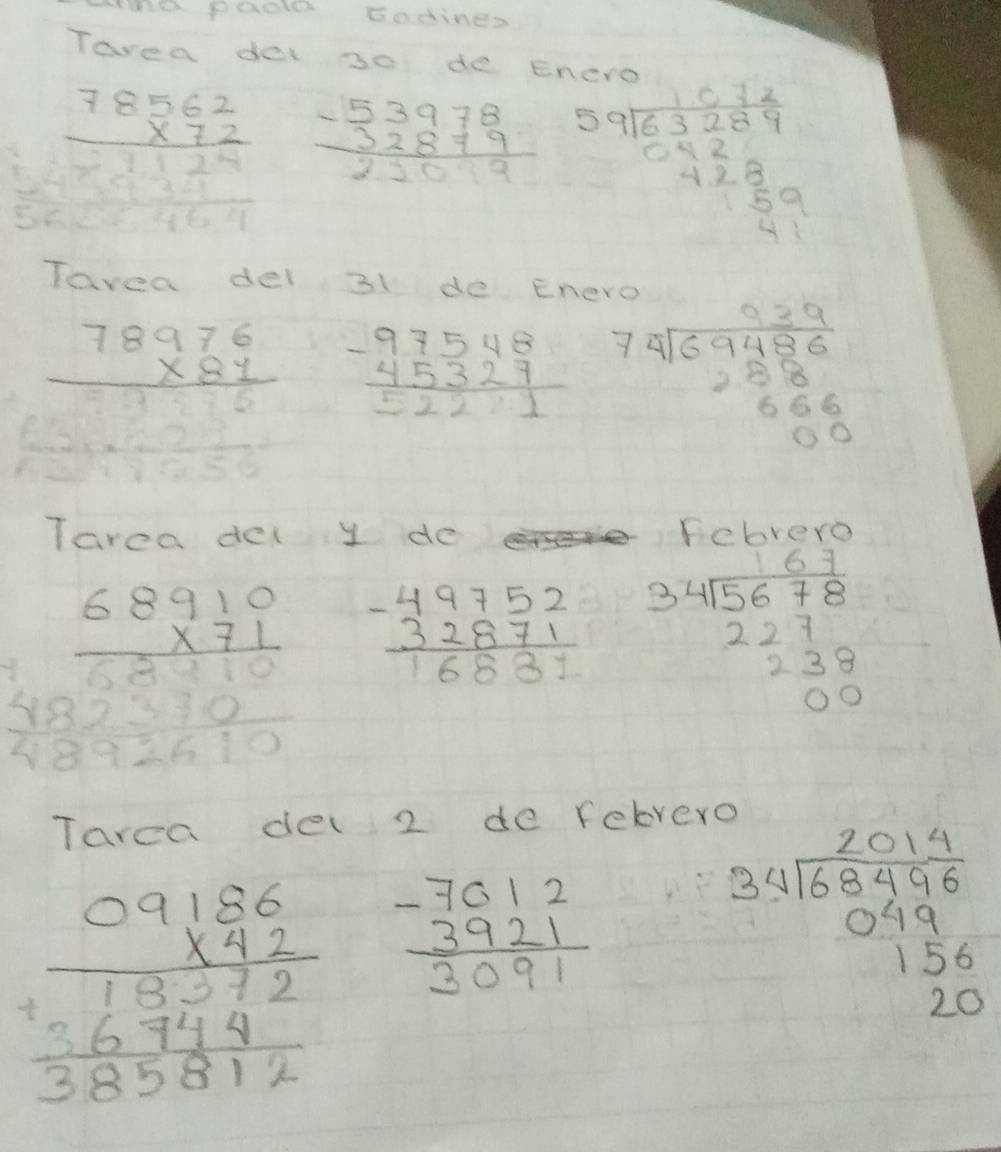 paola Godines
Tarea del 30 de Enero
78562 -53978 1072
x72 32879 59√63289
042
428
159
464 41
Tarea del 31 de Enero
78976 -97548 939
x81 45327 74√69486
288
666
00
Tarea del 1 de Febrero
68910 -49752 167
x71 32871 34√5678
68910 16881 227
482370 238
4892610 00
Tarea del 2 de Febrero
09186 -7012 2014
x42 3921 34√68496
18372 3091 049
+36744 156
385812 20